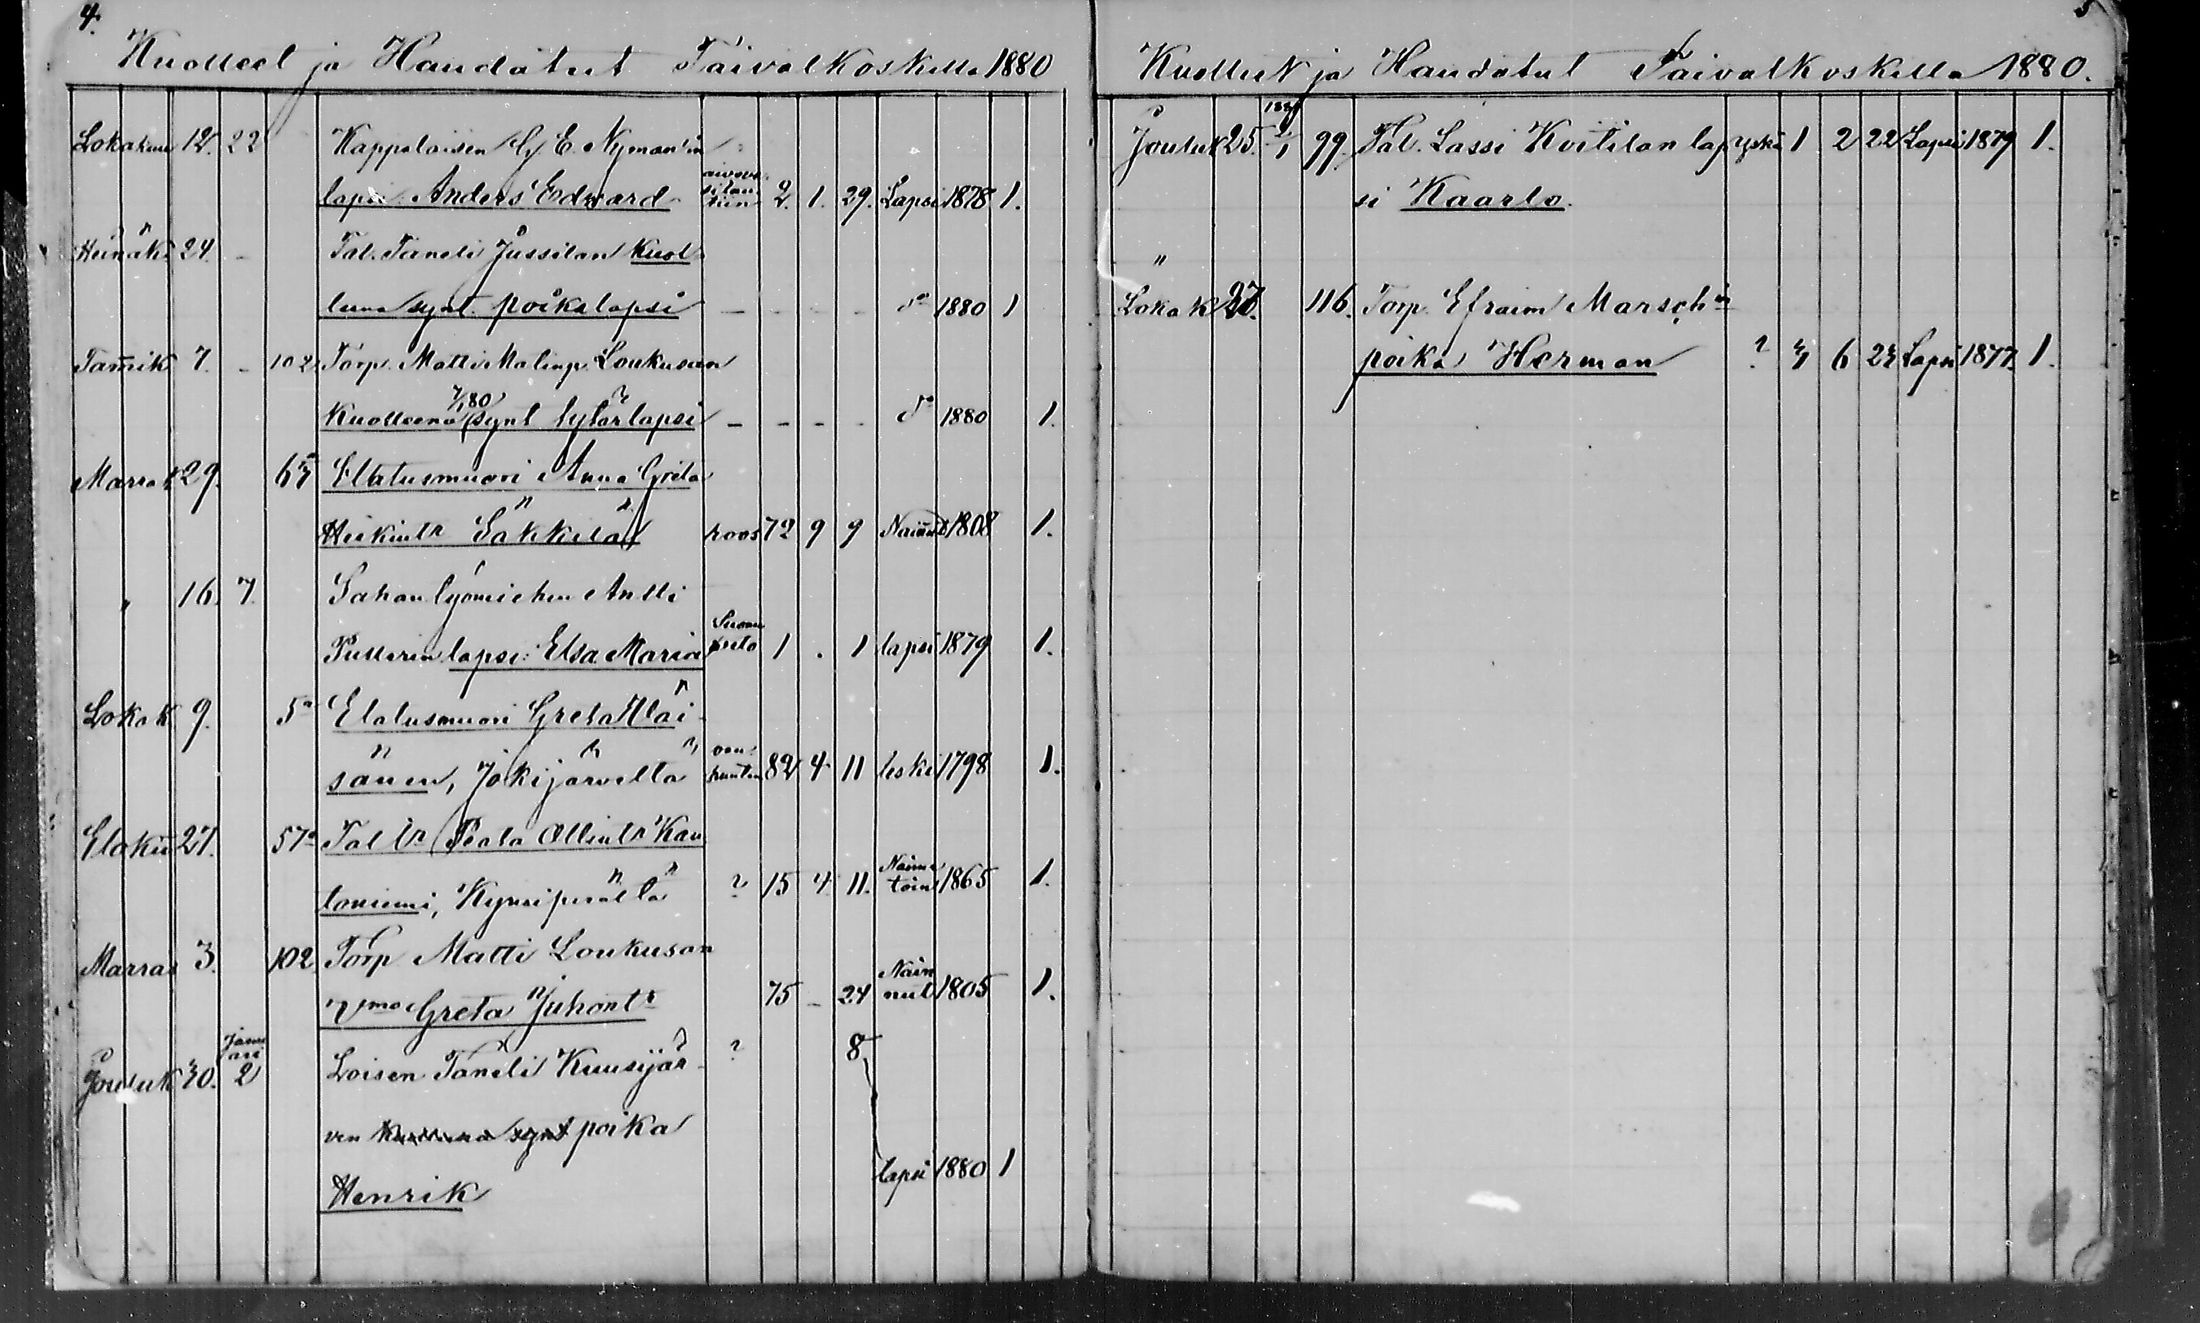 4.
Kuolleet ja Haudatut Taivalkoskella 1880
Lokakuu 12. 22 Kappalaisen G. E. Nyman'in
lapsi Anders Edward 2. 1. 29. Lapsi 1878 1.
Heinäk 24. - Tal. Taneli Jussilan kuol-
leena synt. poikalapsi - - - - d:o 1880 1
Tam̄ik 7. - 102 Torp. Matti Malinp. Loukusan
7/1 80
Kuolleena synt tytärlapsi - - - - d:o 1880 1.
Marrask 29. Elatusmuori Anna Greta
Heikintr Säkkilä 72 9 9 Nainut 1808 1.
" 16. 7. Sahan työmiehen Antti
Putterin lapsi: Elsa Maria 1 . 1 lapsi 1879 1.
Lokak 9. 5 Elatusmuori Greta Aläi-
sänen, Jokijärveltä van-
huuten 82 4 11 leski 1798 1.
Eloku 27. 57 Tal tr Peata Ollintr Kau-
toniemi, Kynsiperältä ? 15 4 11. Naima-
toin 1865 1.
Marras 3. 102 Torp Matti Loukusan
Vmo Greta Juhontr 75 - 24 Nain
nut 1805 1.
Jouluk 30. Janu
ari
2 Loisen Taneli Kuusijär- ? 8
ven poika
Henrik lapsi 1880 1
5
Kuolleet ja Haudatut Taivalkoskella 1880.
Jouluk 25. 1881 99. Tal. Lassi Koitilan lap yskä 1 2 22 Lapsi 1879 1.
si Kaarlo.
"
Lokak 27. 116. Torp. Efraim Marsch'in
poika Herman ? 3 6 23 Lapsi 1877. 1.